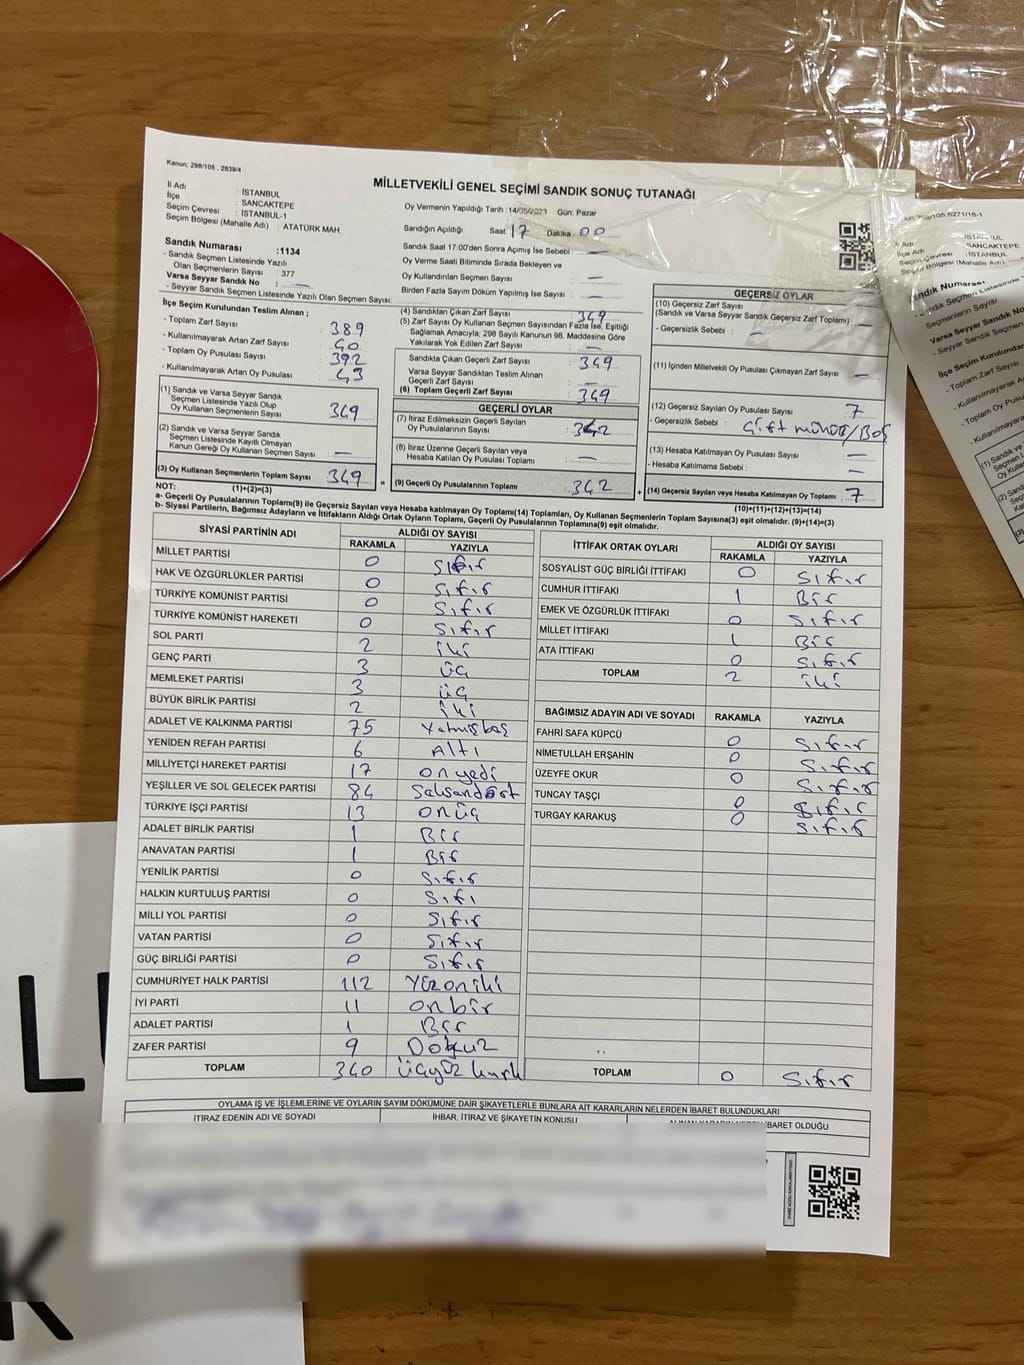 Kanun; 298/105 , 2839/4
MİLLETVEKİLİ GENEL SEÇİMİ SANDIK SONUÇ TUTANAĞI
İl Adı : İSTANBUL
İlçe : SANCAKTEPE
Seçim Çevresi : İSTANBUL-1
Seçim Bölgesi (Mahalle Adı) : ATATÜRK MAH.
Oy Vermenin Yapıldığı Tarih :14/05/2023 Gün: Pazar
Sandığın Açıldığı Saat : 17 Dakika : 00
Sandık Saat 17:00'den Sonra Açımış İse Sebebi : —
Oy Verme Saati Bitiminde Sırada Bekleyen ve
Oy Kullandırılan Seçmen Sayısı : —
Birden Fazla Sayım Döküm Yapılmış İse Sayısı : —
Sandık Numarası :1134
- Sandık Seçmen Listesinde Yazılı
Olan Seçmenlerin Sayısı : 377
Varsa Seyyar Sandık No : —
- Seyyar Sandık Seçmen Listesinde Yazılı Olan Seçmen Sayısı:
İlçe Seçim Kurulundan Teslim Alınan ;
- Toplam Zarf Sayısı : 389
- Kullanılmayarak Artan Zarf Sayısı : 40
- Toplam Oy Pusulası Sayısı : 392
- Kullanılmayarak Artan Oy Pusulası : 43
(1) Sandık ve Varsa Seyyar Sandık
Seçmen Listesinde Yazılı Olup
Oy Kullanan Seçmenlerin Sayısı : 349
(2) Sandık ve Varsa Seyyar Sandık
Seçmen Listesinde Kayıtlı Olmayan
Kanun Gereği Oy Kullanan Seçmen Sayısı : —
(3) Oy Kullanan Seçmenlerin Toplam Sayısı : 349
(4) Sandıktan Çıkan Zarf Sayısı : 349
(5) Zarf Sayısı Oy Kullanan Seçmen Sayısından Fazla İse, Eşitliği
Sağlamak Amacıyla, 298 Sayılı Kanunun 98. Maddesine Göre
Yakılarak Yok Edilen Zarf Sayısı : —
Sandıkta Çıkan Geçerli Zarf Sayısı : 349
Varsa Seyyar Sandıktan Teslim Alınan
Geçerli Zarf Sayısı : —
(6) Toplam Geçerli Zarf Sayısı : 349
GEÇERLİ OYLAR
(7) İtiraz Edilmeksizin Geçerli Sayılan
Oy Pusulalarının Sayısı : 342
(8) İtiraz Üzerine Geçerli Sayılan veya
Hesaba Katılan Oy Pusulası Toplamı : —
= (9) Geçerli Oy Pusulalarının Toplamı : 342 +
GEÇERSİZ OYLAR
(10) Geçersiz Zarf Sayısı
(Sandık ve Varsa Seyyar Sandık Geçersiz Zarf Toplamı) : —
- Geçersizlik Sebebi : —
(11) İçinden Milletvekili Oy Pusulası Çıkmayan Zarf Sayısı : —
(12) Geçersiz Sayılan Oy Pusulası Sayısı : 7
- Geçersizlik Sebebi : Çift mühür/Boş
(13) Hesaba Katılmayan Oy Pusulası Sayısı : —
- Hesaba Katılmama Sebebi : —
(14) Geçersiz Sayılan veya Hesaba Katılmayan Oy Toplamı : 7
NOT: (1)+(2)=(3) (10)+(11)+(12)+(13)=(14)
a- Geçerli Oy Pusulalarının Toplamı(9) ile Geçersiz Sayılan veya Hesaba Katılmayan Oy Toplamı(14) Toplamları, Oy Kullanan Seçmenlerin Toplam Sayısına(3) eşit olmalıdır. (9)+(14)=(3)
b- Siyasi Partilerin, Bağımsız Adayların ve İttifakların Aldığı Ortak Oyların Toplamı, Geçerli Oy Pusulalarının Toplamına(9) eşit olmalıdır.
SİYASİ PARTİNİN ADI ALDIĞI OY SAYISI
RAKAMLA YAZIYLA
MİLLET PARTİSİ 0 Sıfır
HAK VE ÖZGÜRLÜKLER PARTİSİ 0 Sıfır
TÜRKİYE KOMÜNİST PARTİSİ 0 Sıfır
TÜRKİYE KOMÜNİST HAREKETİ 0 Sıfır
SOL PARTİ 2 iki
GENÇ PARTİ 3 üç
MEMLEKET PARTİSİ 3 üç
BÜYÜK BİRLİK PARTİSİ 2 iki
ADALET VE KALKINMA PARTİSİ 75 Yetmişbeş
YENİDEN REFAH PARTİSİ 6 Altı
MİLLİYETÇİ HAREKET PARTİSİ 17 onyedi
YEŞİLLER VE SOL GELECEK PARTİSİ 84 Seksendört
TÜRKİYE İŞÇİ PARTİSİ 13 onüç
ADALET BİRLİK PARTİSİ 1 Bir
ANAVATAN PARTİSİ 1 Bir
YENİLİK PARTİSİ 0 Sıfır
HALKIN KURTULUŞ PARTİSİ 0 Sıfı
MİLLİ YOL PARTİSİ 0 Sıfır
VATAN PARTİSİ 0 Sıfır
GÜÇ BİRLİĞİ PARTİSİ 0 Sıfır
CUMHURİYET HALK PARTİSİ 112 Yüzoniki
İYİ PARTİ 11 onbir
ADALET PARTİSİ 1 Bir
ZAFER PARTİSİ 9 Dokuz
TOPLAM 340 üçyüz kırk
İTTİFAK ORTAK OYLARI ALDIĞI OY SAYISI
RAKAMLA YAZIYLA
SOSYALİST GÜÇ BİRLİĞİ İTTİFAKI 0 Sıfır
CUMHUR İTTİFAKI 1 Bir
EMEK VE ÖZGÜRLÜK İTTİFAKI 0 Sıfır
MİLLET İTTİFAKI 1 Bir
ATA İTTİFAKI 0 Sıfır
TOPLAM 2 iki
BAĞIMSIZ ADAYIN ADI VE SOYADI RAKAMLA YAZIYLA
FAHRİ SAFA KÜPCÜ 0 Sıfır
NİMETULLAH ERŞAHİN 0 Sıfır
ÜZEYFE OKUR 0 Sıfır
TUNCAY TAŞÇI 0 Sıfır
TURGAY KARAKUŞ 0 Sıfır
TOPLAM 0 Sıfır
OYLAMA İŞ VE İŞLEMLERİNE VE OYLARIN SAYIM DÖKÜMÜNE DAİR ŞİKAYETLERLE BUNLARA AİT KARARLARIN NELERDEN İBARET BULUNDUKLARI
İTİRAZ EDENİN ADI VE SOYADI İHBAR, İTİRAZ VE ŞİKAYETİN KONUSU İBARET OLDUĞU
İl Adı : İSTANBUL
İlçe Adı : SANCAKTEPE
Seçim Bölgesi (Mahalle Adı)
Sandık Numarası
- Sandık Seçmen Listesinde
Seçmenlerin Sayısı
Varsa Seyyar Sandık No
- Seyyar Sandık
İlçe Seçim Kurulundan
- Toplam Zarf Sayısı
- Kullanılmayarak
- Toplam Oy
- Kullanılmayarak
K